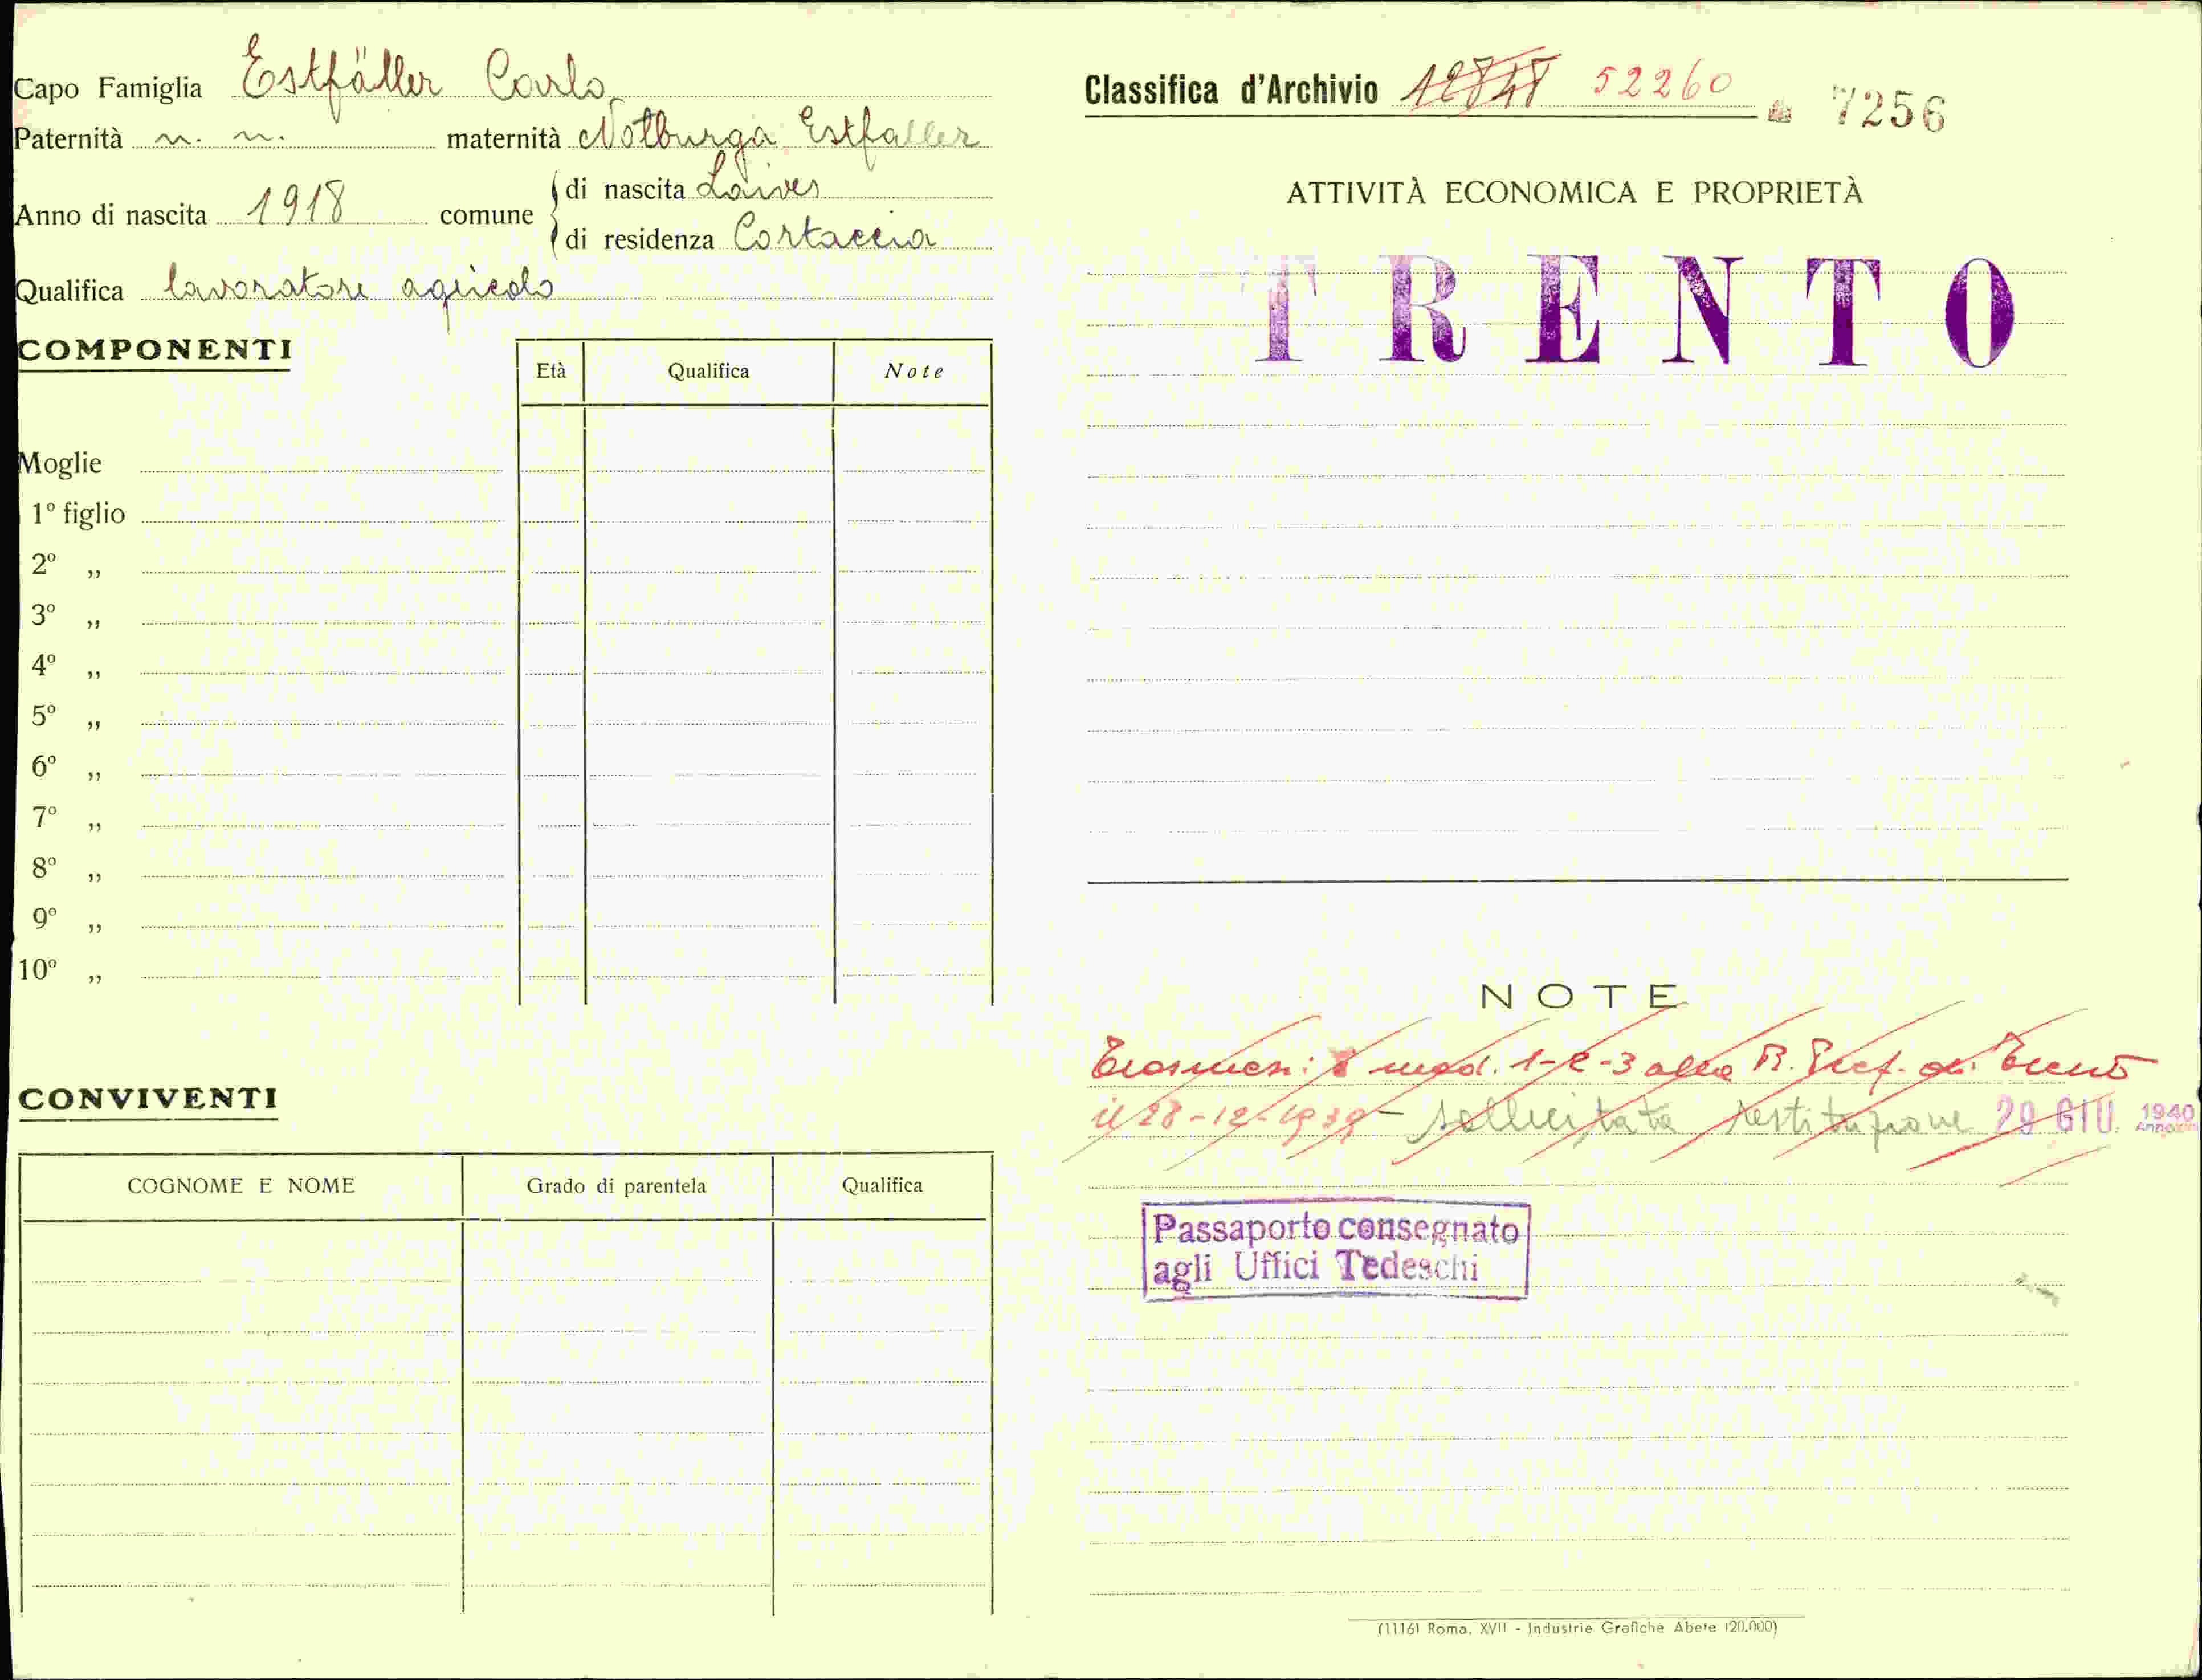 Capo Famiglia Estfäller Carlo
Paternità n. n. maternità Notburga Estfaller
Anno di nascita 1918 comune di nascita Laives
di residenza Cortaccia
Qualifica lavoratore agricolo
COMPONENTI
Età Qualifica Note
Moglie
1º figlio
2º „
3º „
4º „
5º „
6º „
7º „
8º „
9º „
10º „
CONVIVENTI
COGNOME E NOME Grado di parentela Qualifica
Classifica d'Archivio 12848 52260 7256
ATTIVITÀ ECONOMICA E PROPRIETÀ
TRENTO
NOTE
mod. 1-2-3 alla R. Pref. di Trento
il 28-12-1939 - sollecitata restituzione 29 GIU. 1940
Passaporto consegnato
agli Uffici Tedeschi
(1116) Roma, XVII - Industrie Grafiche Abete (20.000)